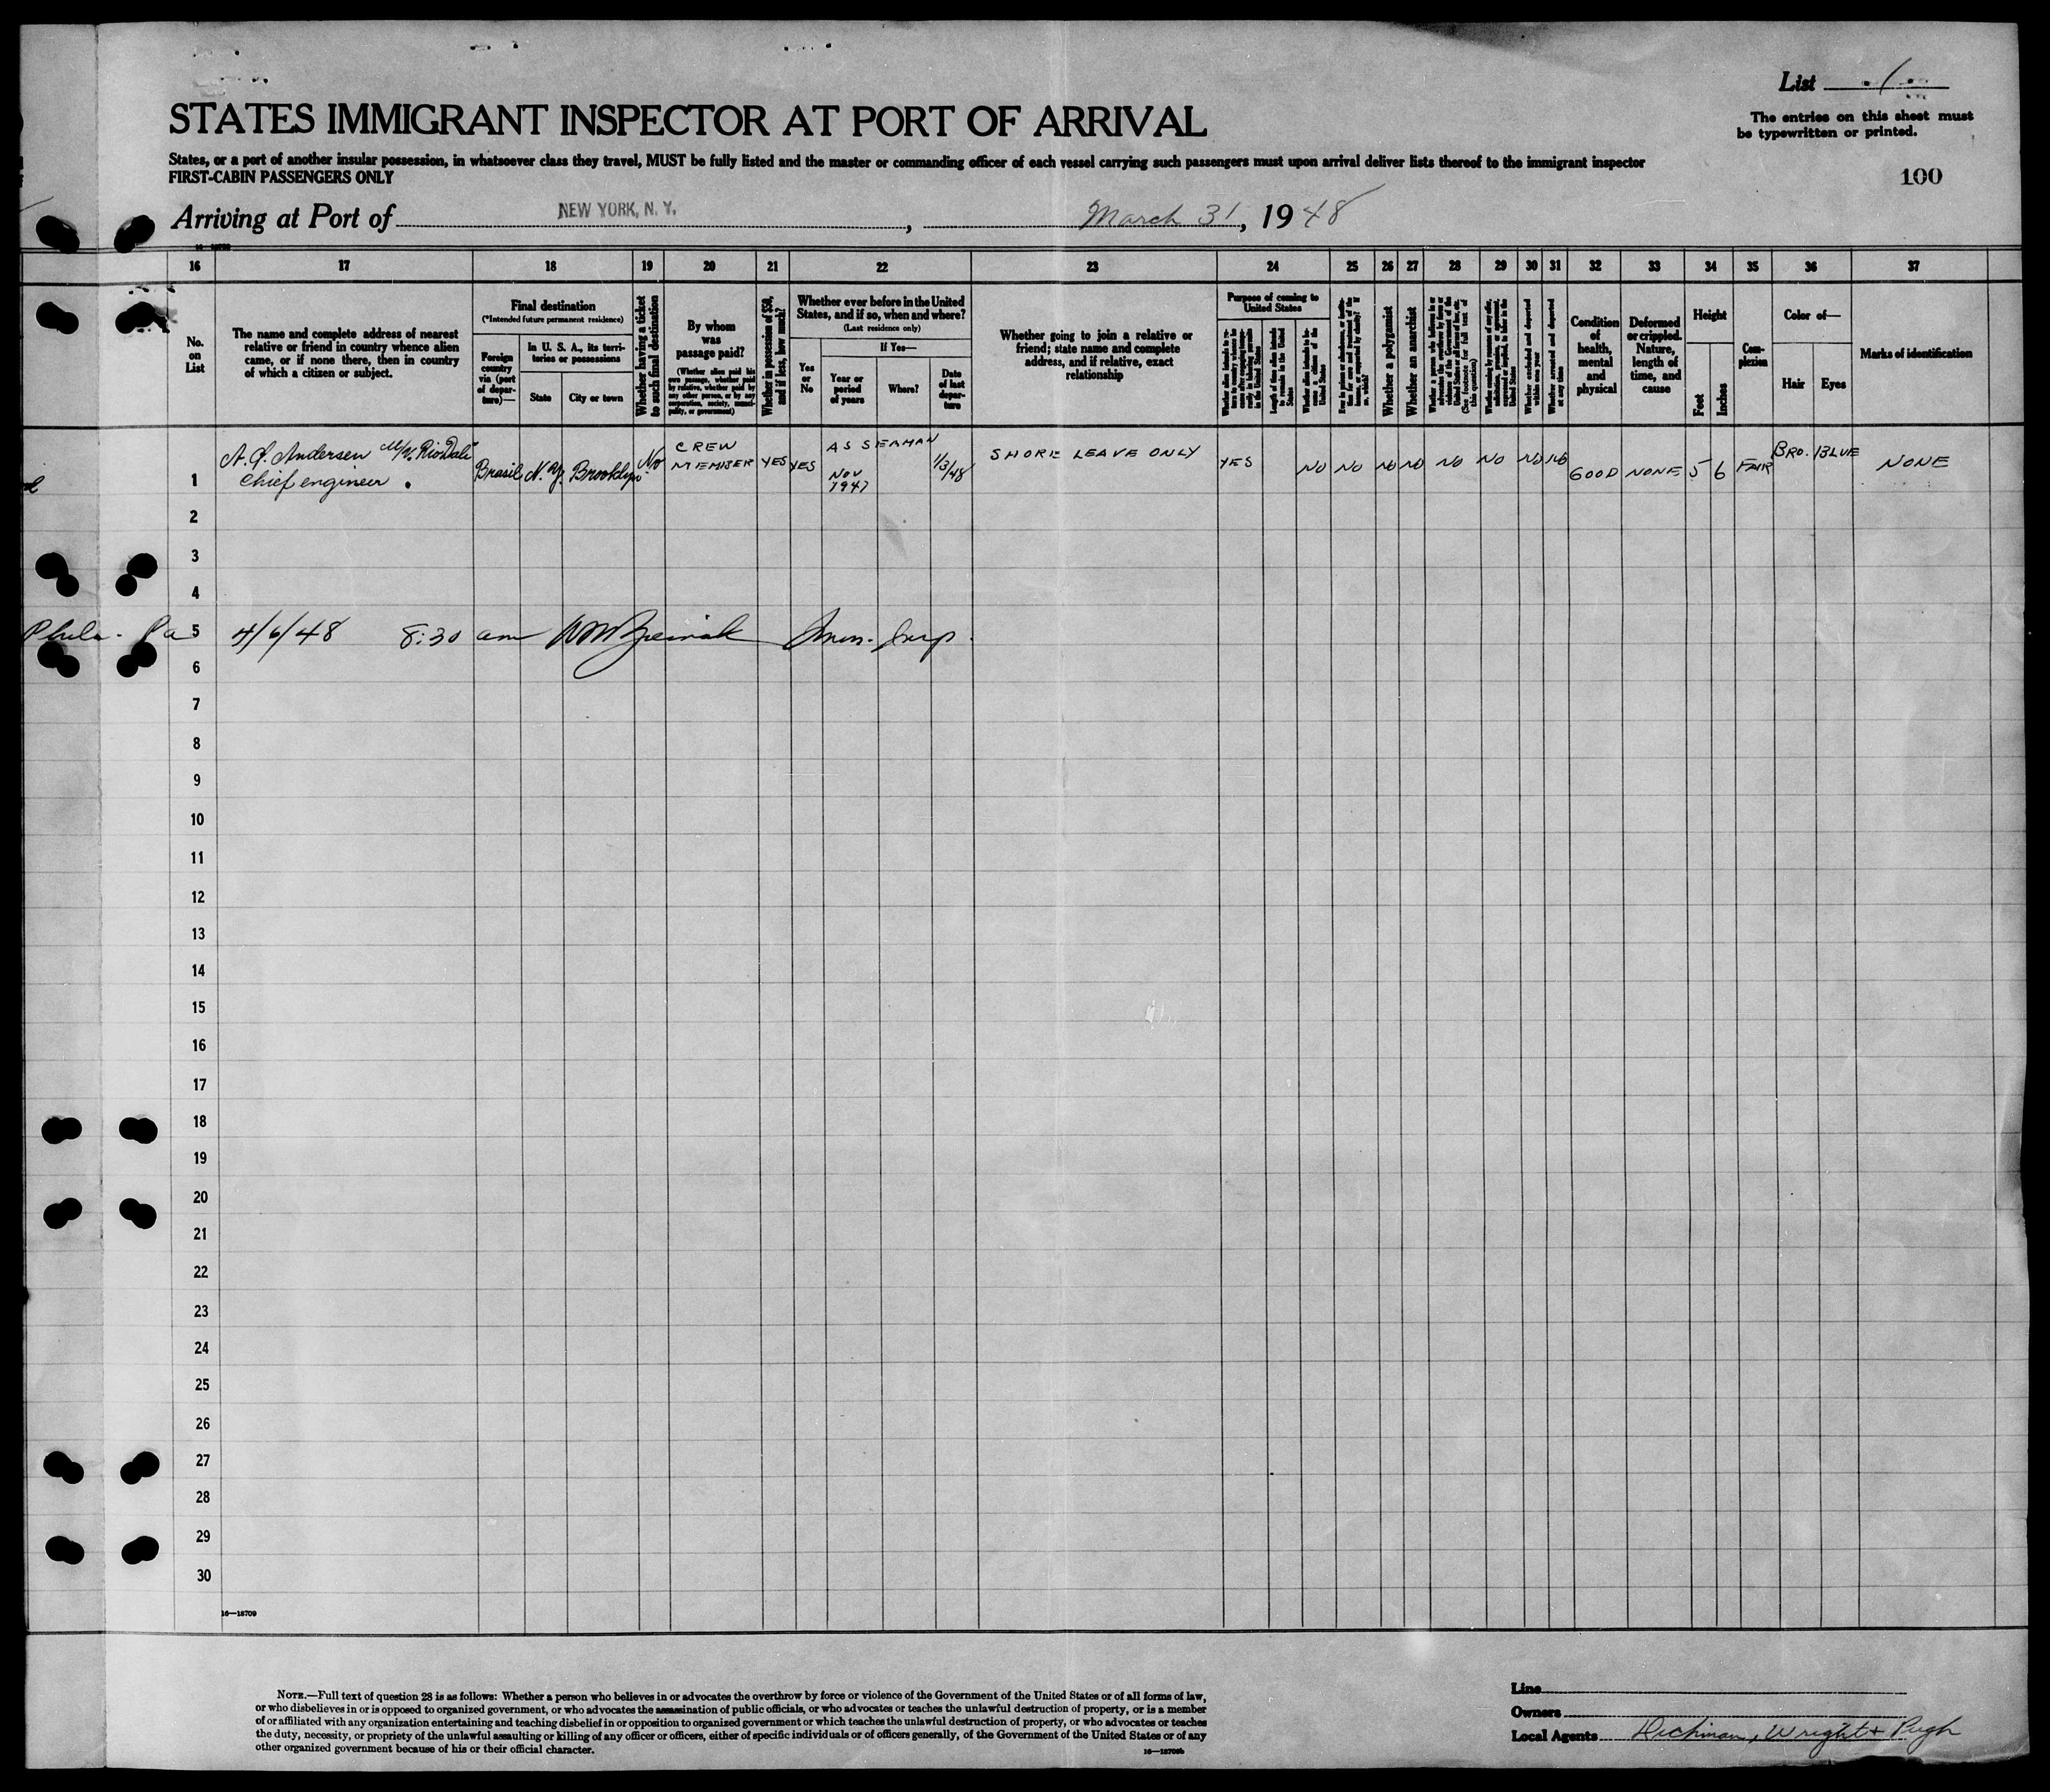 List 1
The entries on this sheet must
be typewritten or printed.
STATES IMMIGRANT INSPECTOR AT PORT OF ARRIVAL
States, or a port of another insular possession, in whatsoever class they travel, MUST be fully listed and the master or commanding officer of each vessel carrying such passengers must upon arrival deliver lists thereof to the immigrant inspector
FIRST-CABIN PASSENGERS ONLY
100
Arriving at Port of NEW YORK, N. Y., March 31, 1948
16 17 18 19 20 21 22 23 24 25 26 27 28 29 30 31 32 33 34 35 36 37
No.
on
List
The name and complete address of nearest
relative or friend in country whence alien
came, or if none there, then in country
of which a citizen or subject.
Final destination
(*Intended future permanent residence)
Foreign
country
via (port
of depar-
ture)—
In U. S. A., its terri-
tories or possessions
State
City or town
Whether having a ticket
to such final destination
By whom
was
passage paid?
(Whether alien paid his
own passage, whether paid
by relative, whether paid by
any other person, or by any
corporation, society, munici-
pality, or government)
Whether in possession of $50,
and if less, how much?
Whether ever before in the United
States, and if so, when and where?
(Last residence only)
Yes
or
No
If Yes—
Year or
period
of years
Where?
Date
of last
depar-
ture
Whether going to join a relative or
friend; state name and complete
address, and if relative, exact
relationship
Purpose of coming to
United States
Length of time alien intends
to remain in the United
States
Whether alien intends to be-
come a citizen of the
United States
Whether a polygamist
Whether an anarchist
Whether excluded and deported
within one year
Whether arrested and deported
at any time
Condition
of
health,
mental
and
physical
Deformed
or crippled.
Nature,
length of
time, and
cause
Height
Feet
Inches
Com-
plexion
Color of—
Hair
Eyes
Marks of identification
1 A. J. Andersen M/V. Rio Dale Brasil N.Y. Brooklyn No CREW MEMBER YES YES AS SEAMAN NOV 1947 1/3/48 SHORE LEAVE ONLY YES NO NO NO NO NO NO NO NO GOOD NONE 5 6 FAIR BRO. BLUE NONE
Chief engineer
2
3
4
Phila. Pa 5 4/6/48 8:30 am Imm. Insp.
6
7
8
9
10
11
12
13
14
15
16
17
18
19
20
21
22
23
24
25
26
27
28
29
30
16—18709
NOTE.—Full text of question 28 is as follows: Whether a person who believes in or advocates the overthrow by force or violence of the Government of the United States or of all forms of law,
or who disbelieves in or is opposed to organized government, or who advocates the assassination of public officials, or who advocates or teaches the unlawful destruction of property, or is a member
of or affiliated with any organization entertaining and teaching disbelief in or opposition to organized government or which teaches the unlawful destruction of property, or who advocates or teaches
the duty, necessity, or propriety of the unlawful assaulting or killing of any officer or officers, either of specific individuals or of officers generally, of the Government of the United States or of any
other organized government because of his or their official character.
16—18709b
Line
Owners
Local Agents Dichman, Wright + Pugh